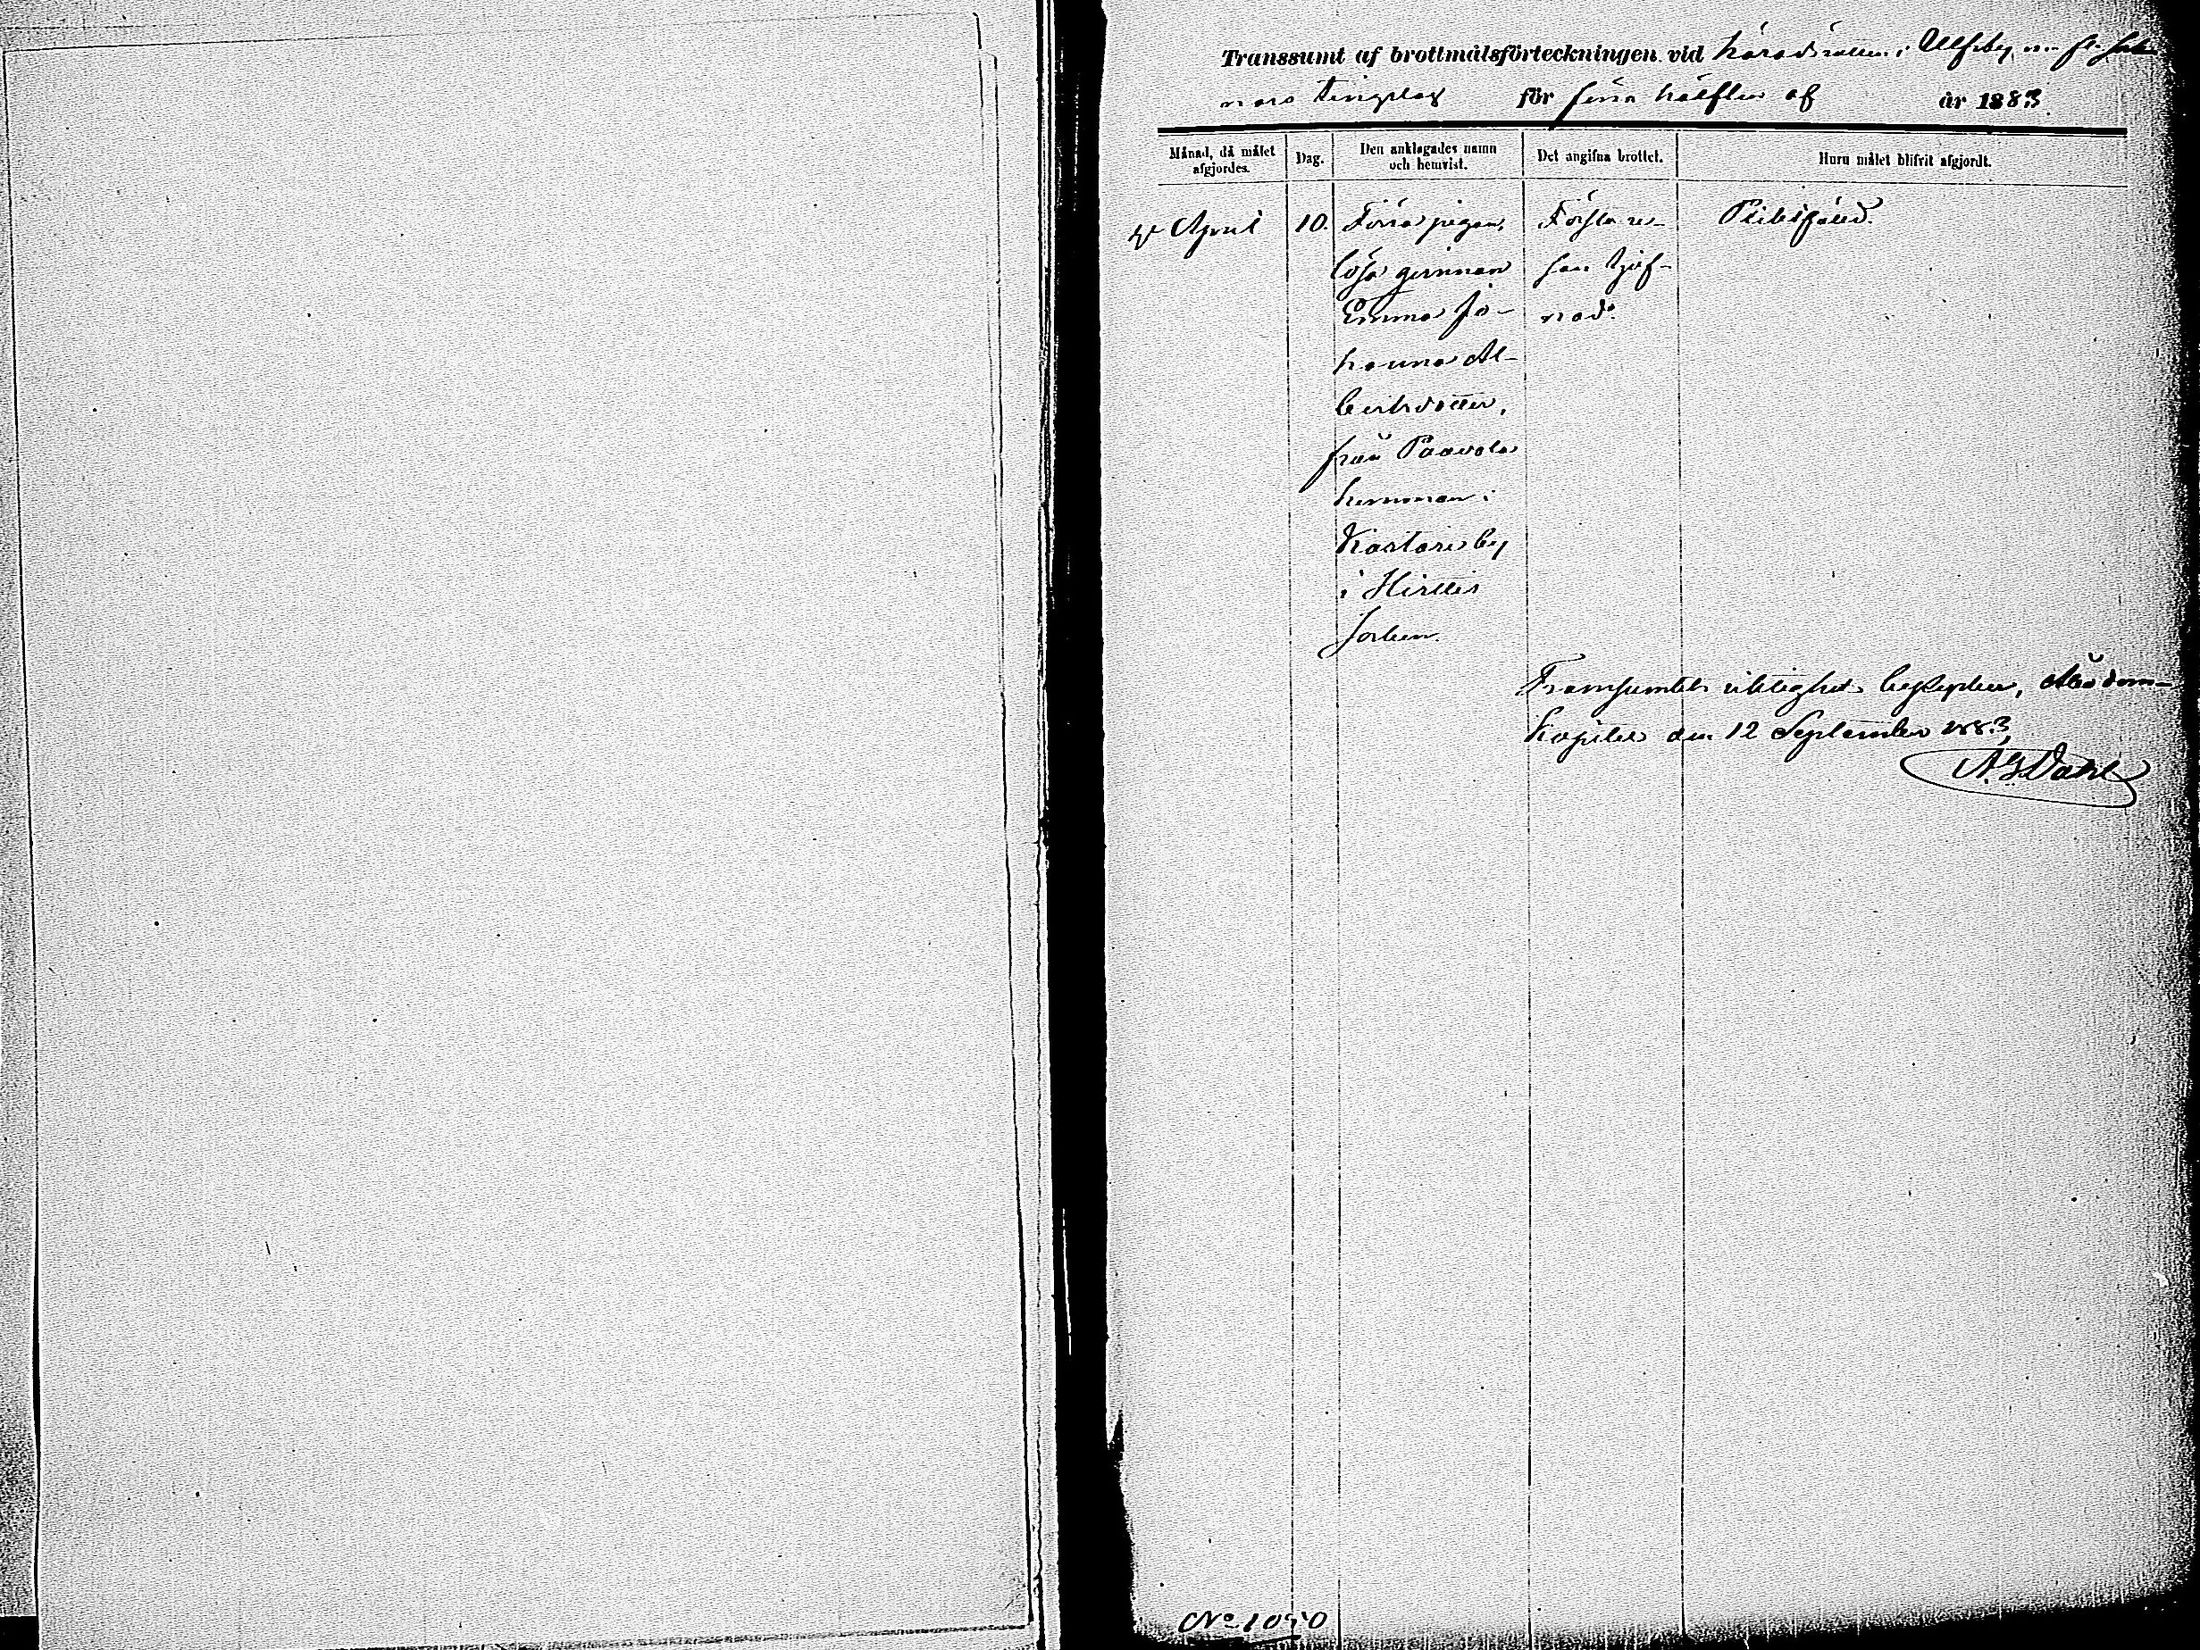 Transsumt af brottmålsförteckningen vid häradsrätten i Ulfsby m. fl. sock-
nars tingslag för förra hälften af år 1883.
Månad, då målet afgjordes.
Dag.
Den anklagades namn och hemvist.
Det angifna brottet.
Huru målet blifvit afgjordt.
April
10.
Förra pigan,
lösa qvinnan
Emma Jo-
hanna Al-
bertsdotter,
från Paavola
hemman i
Kaslar by
i
Socken.
Första re-
san tjuf-
nad.
Pliktfäld.
Transumtets riktighet bestyrker, Åbo dom-
kapitel den 12 September 1883,
Dahl
No 1090